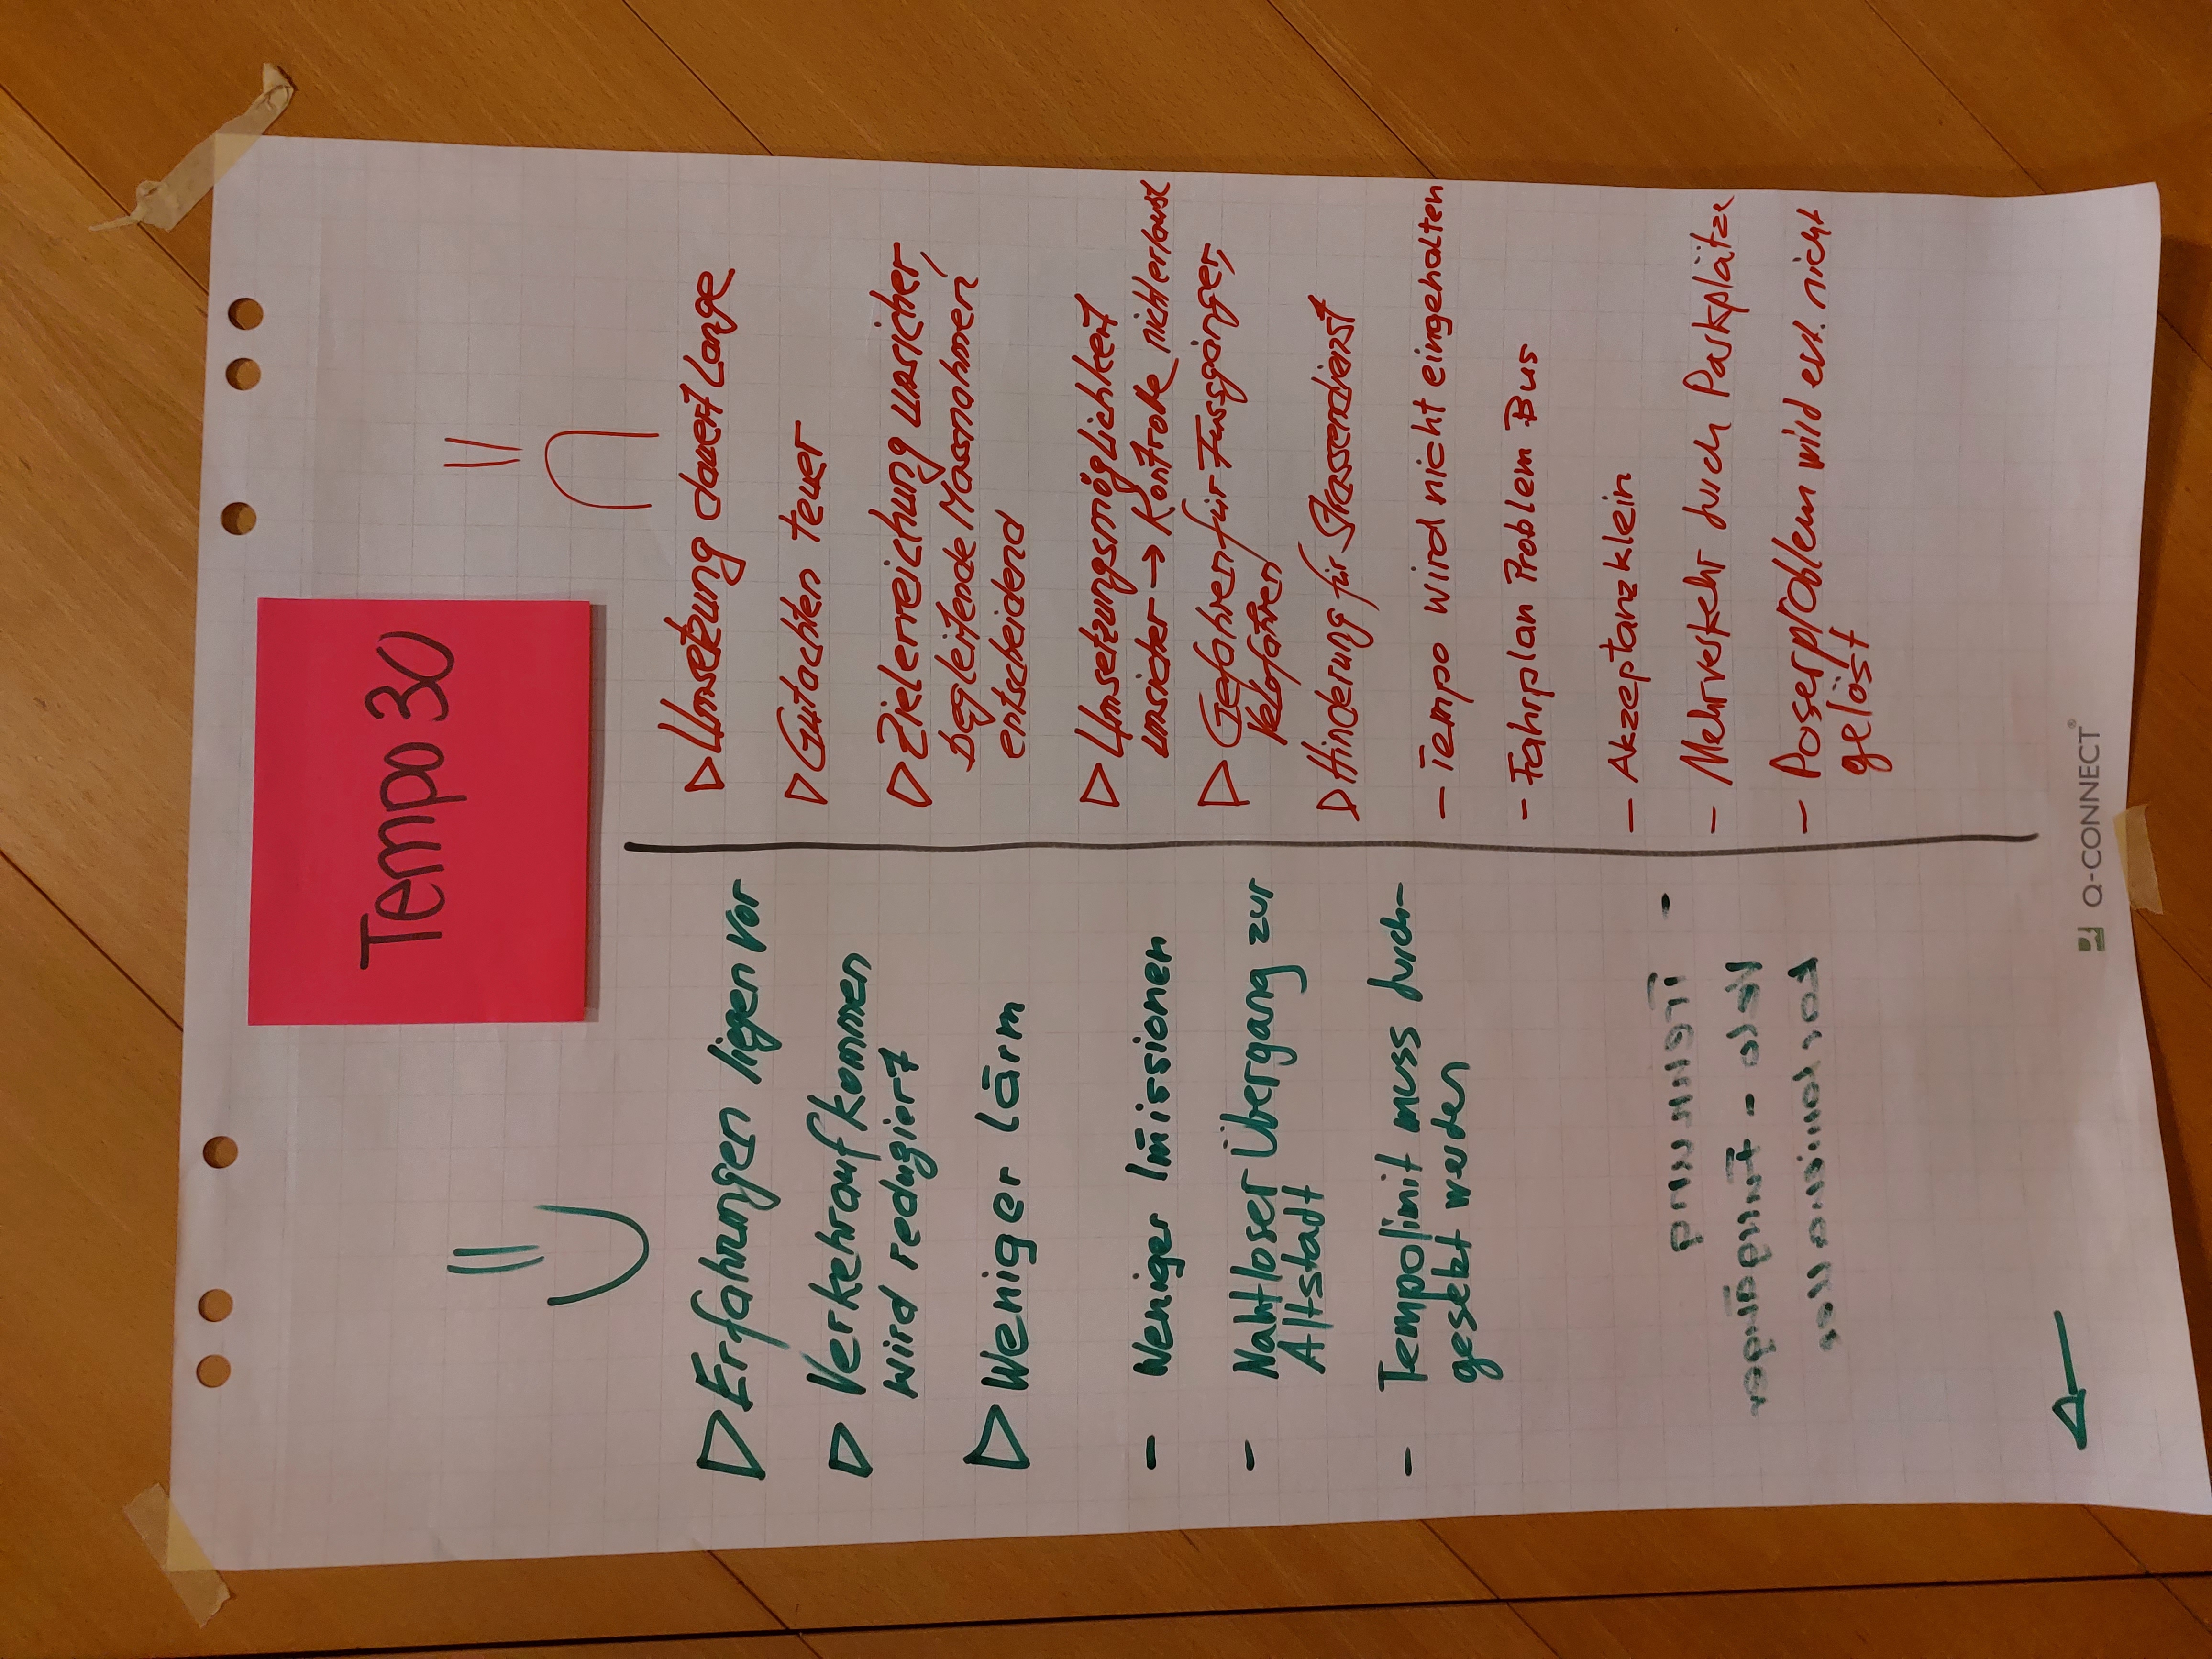 Tempo 30
Erfahrungen liegen vor
Verkehraufkommen
wird reduziert
Weniger Lärm
- Weniger Imissionen
- Nahtloser Übergang zur
Altstadt
- Tempolimit muss durch-
gesetzt werden
Umsetzung dauert Lange
Gutachten teuer
Zielerreichung unsicher,
begleitende Massnahmen
entscheidend
Umsetzungsmöglichkeit
unsicher → Kontrolle nicht erlaubt
Gefahren für Fussgänger,
Velofahrer
Hinderung für Strassendienst
- Tempo wird nicht eingehalten
- Fahrplan Problem Bus
- Akzeptanz klein
- Mehrverkehr durch Parkplätze
- Poserproblem wird evt. nicht
gelöst
Q-CONNECT®